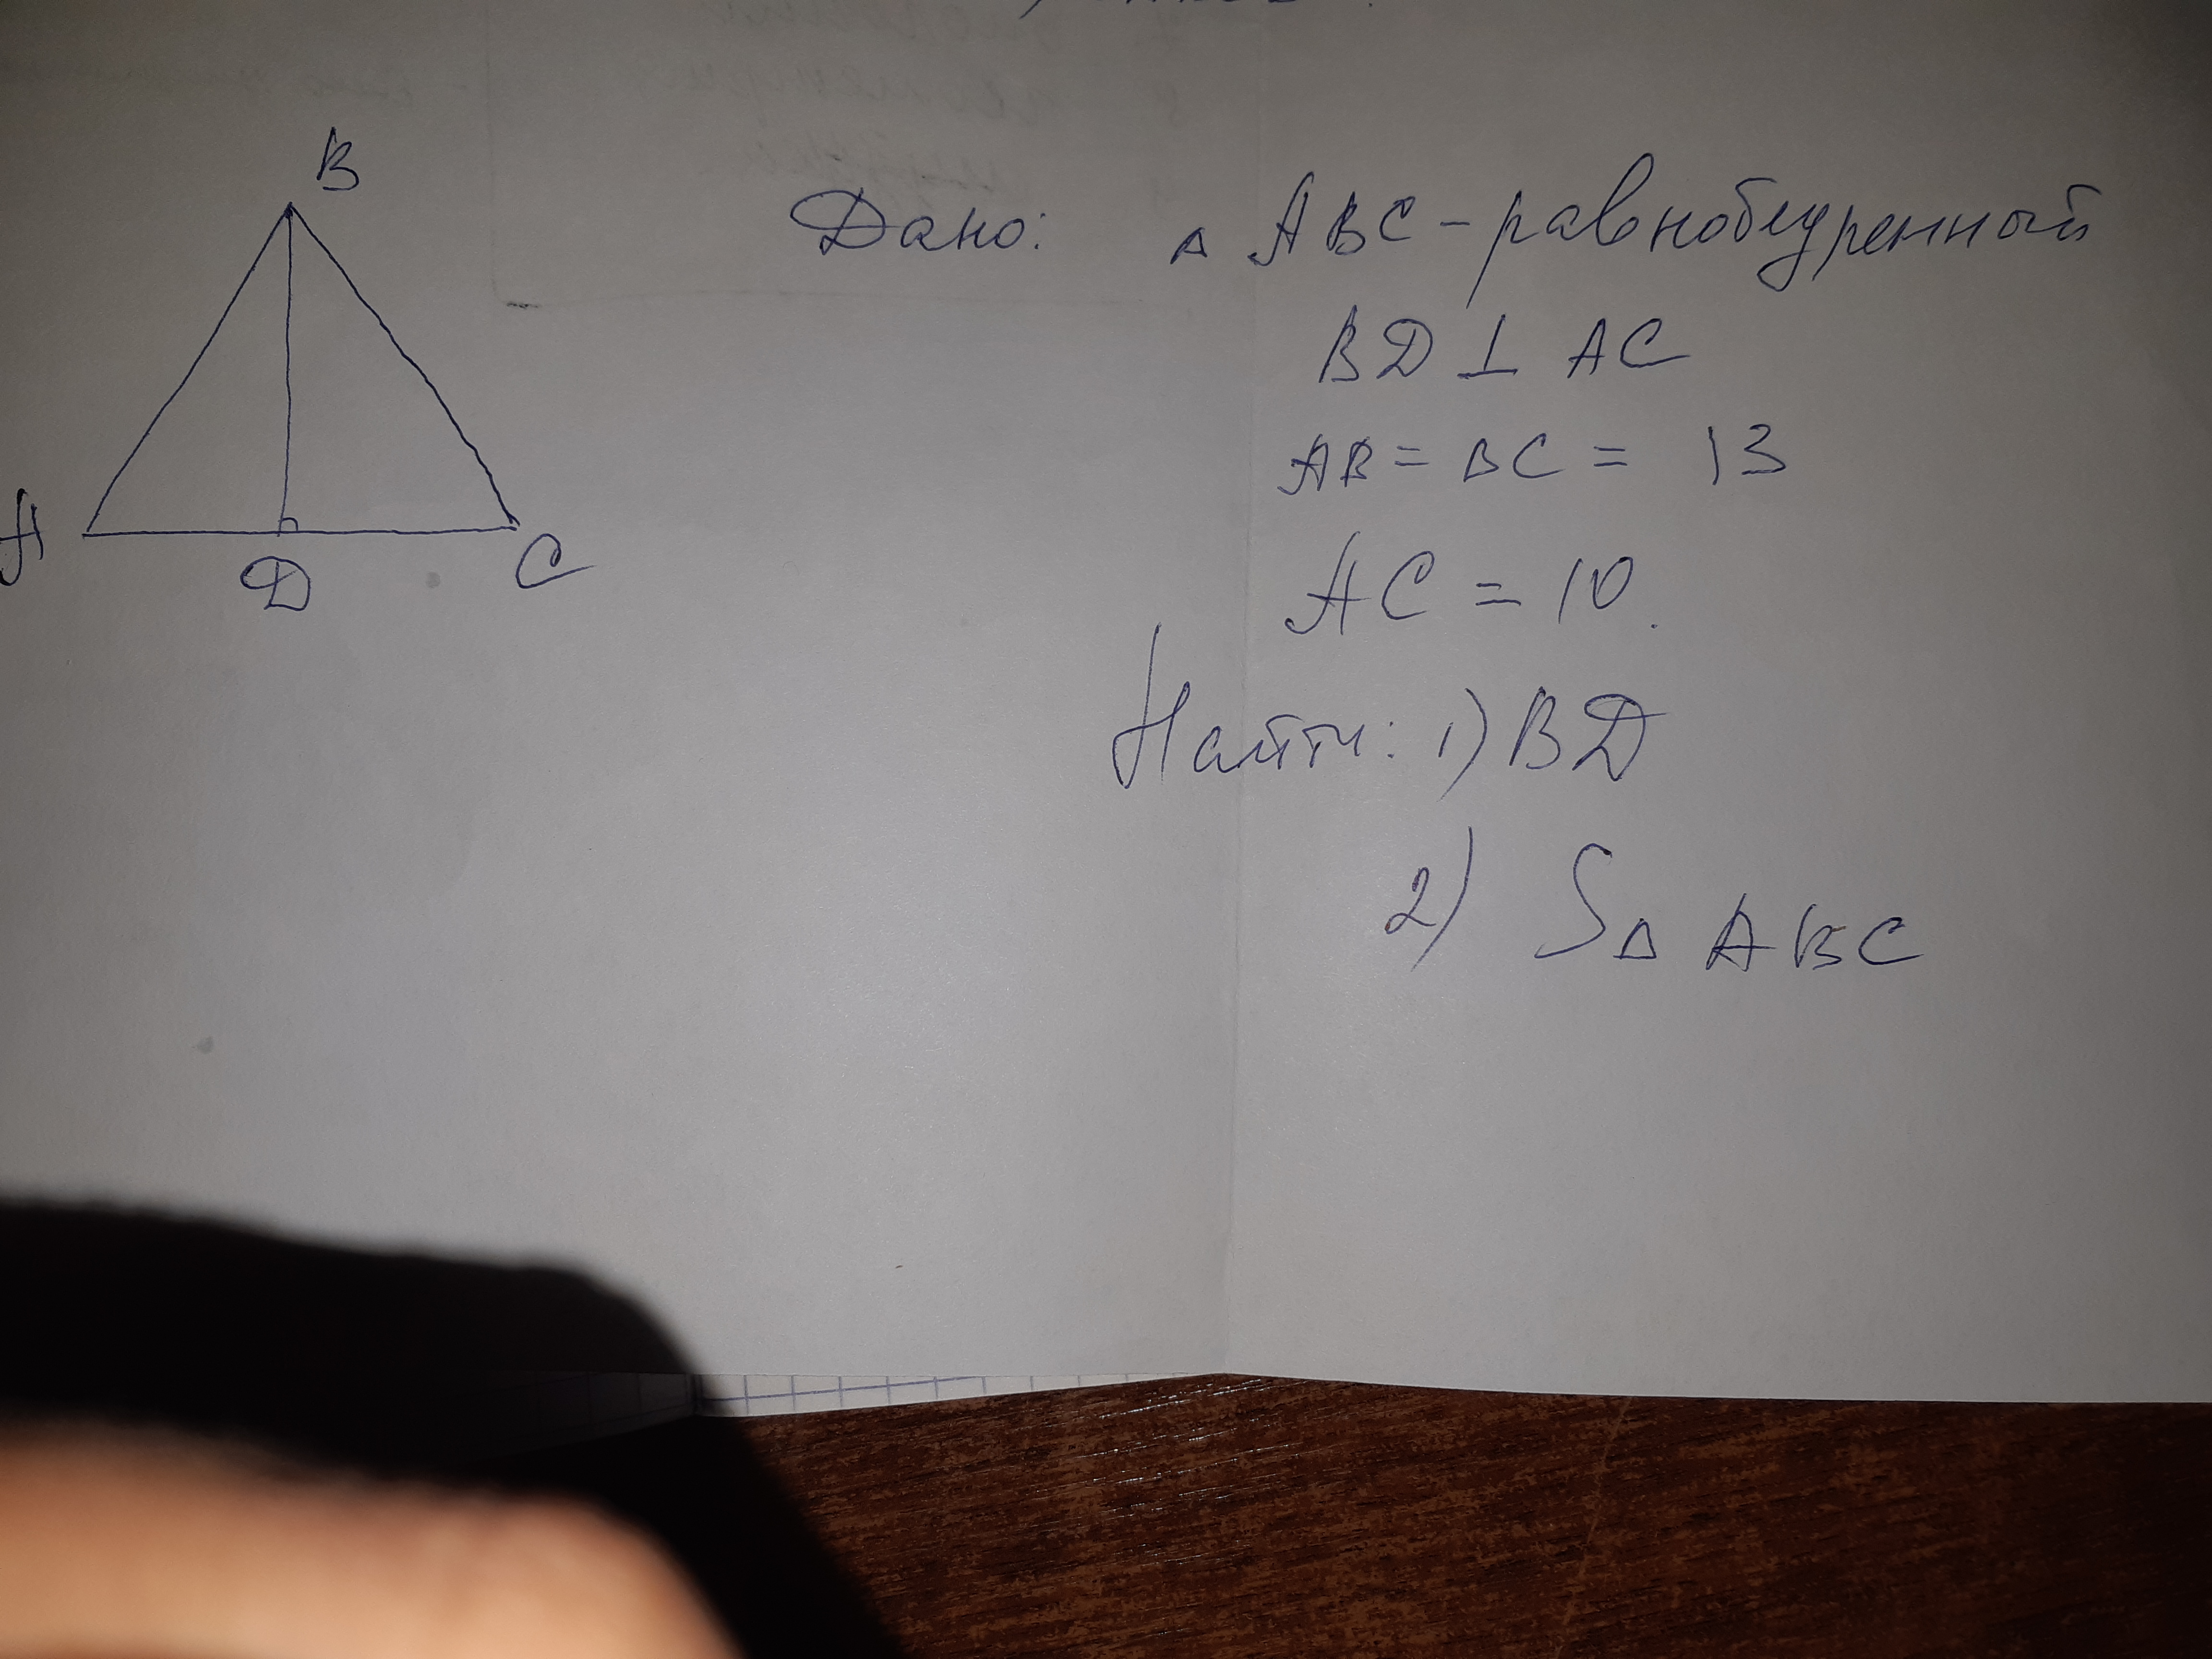 B
A
D
C
Дано: △ ABC - равнобедренный
BD ⊥ AC
AB = BC = 13
AC = 10.
Найти: 1) BD
2) S△ ABC